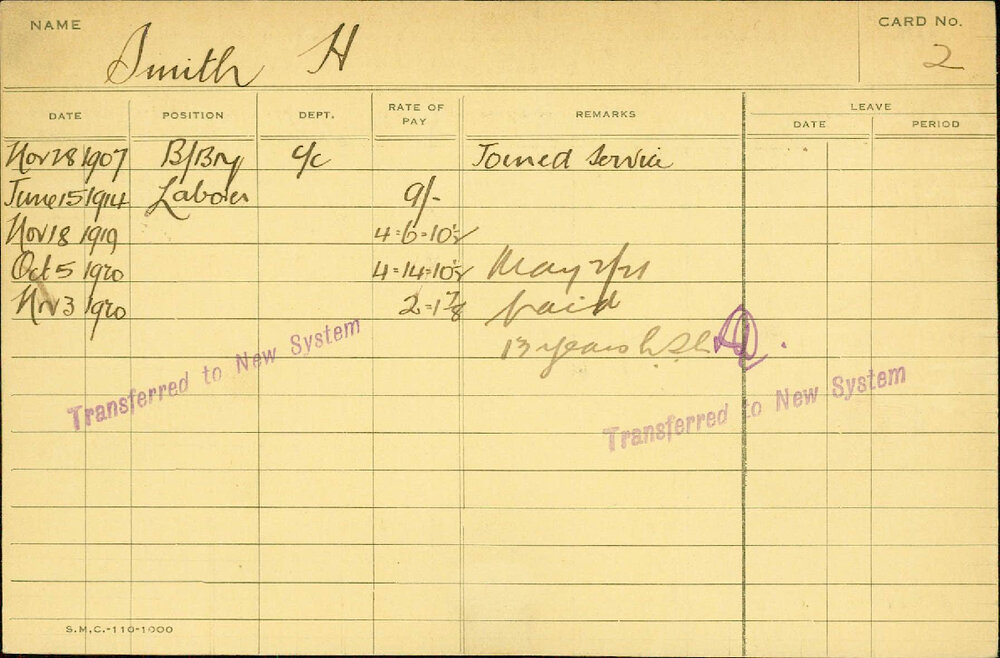 NAME Smith H CARD No. 2
DATE POSITION DEPT. RATE OF PAY REMARKS LEAVE
DATE PERIOD
Nov 28 1907 B/Bry c/c Joined Service
June 15 1914 Laborer 9/-
Nov 18 1919 4=6=10½
Oct 5 1920 4=14=10½ May 2/21
Nov 3 1920 2=1⅞ paid
13 years
Transferred to New System
Transferred to New System
S.M.C.-110-1000